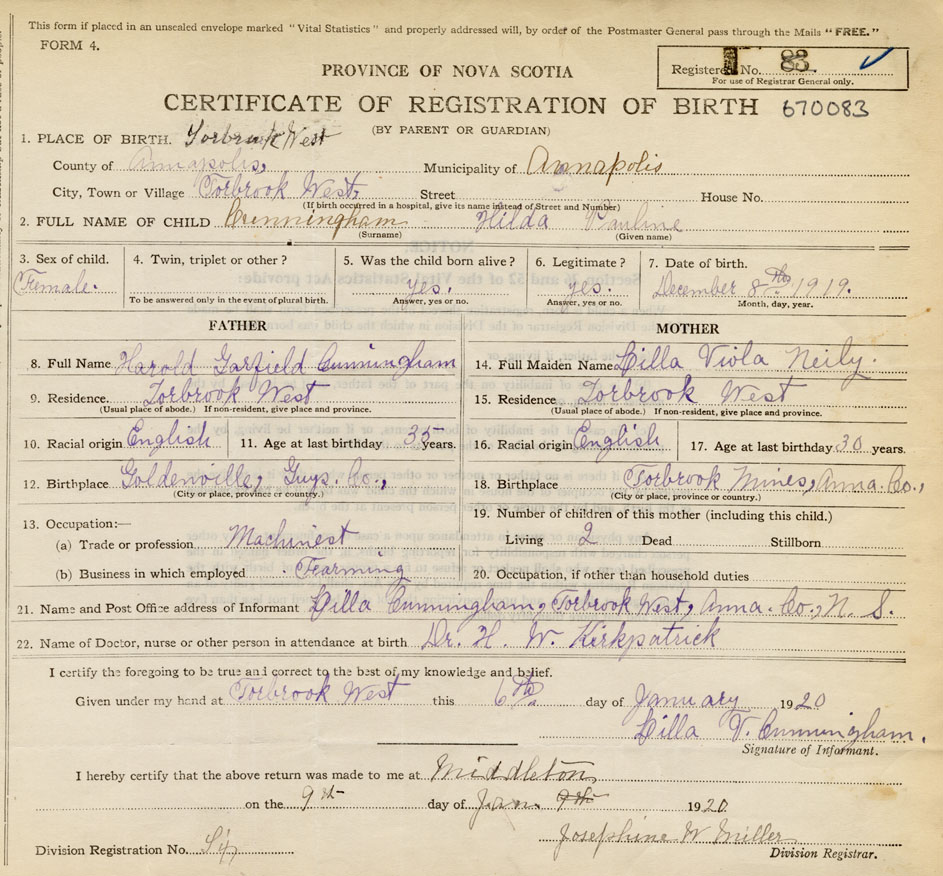 This form if placed in an unsealed envelope marked "Vital Statistics" and properly addressed will, by order of the Postmaster General pass through the Mails "FREE."
FORM 4.
Registered No. 83
For use of Registrar General only.
PROVINCE OF NOVA SCOTIA
CERTIFICATE OF REGISTRATION OF BIRTH 670083
(BY PARENT OR GUARDIAN)
1. PLACE OF BIRTH. Torbrook West
County of Annapolis, Municipality of Annapolis
City, Town or Village Torbrook West, Street House No.
(If birth occurred in a hospital, give its name instead of Street and Number)
2. FULL NAME OF CHILD Cunningham Hilda Pauline
(Surname) (Given name)
3. Sex of child. 4. Twin, triplet or other? 5. Was the child born alive? 6. Legitimate? 7. Date of birth.
Female. yes. yes. December 8th 1919.
To be answered only in the event of plural birth. Answer, yes or no. Answer, yes or no. Month, day, year.
FATHER MOTHER
8. Full Name Harold Garfield Cunningham 14. Full Maiden Name Lilla Viola Neily.
9. Residence. Torbrook West 15. Residence Torbrook West
(Usual place of abode.) If non-resident, give place and province. (Usual place of abode.) If non-resident, give place and province.
10. Racial origin English 11. Age at last birthday 35 years. 16. Racial origin English 17. Age at last birthday 30 years.
12. Birthplace Goldenville, Guys. Co., 18. Birthplace Torbrook Mines, Anna. Co.,
(City or place, province or country.) (City or place, province or country.)
13. Occupation:— 19. Number of children of this mother (including this child.)
(a) Trade or profession Machinest Living 2 Dead Stillborn
(b) Business in which employed Fearming 20. Occupation, if other than household duties
21. Name and Post Office address of Informant Lilla Cunningham, Torbrook West, Anna. Co., N. S.
22. Name of Doctor, nurse or other person in attendance at birth Dr. H. W. Kirkpatrick
I certify the foregoing to be true and correct to the best of my knowledge and belief.
Given under my hand at Torbrook West this 6th day of January 1920
Lilla V. Cunningham.
Signature of Informant.
I hereby certify that the above return was made to me at Middleton
on the 9th day of Jan. 9th 1920
Josephine W Miller
Division Registration No. Division Registrar.